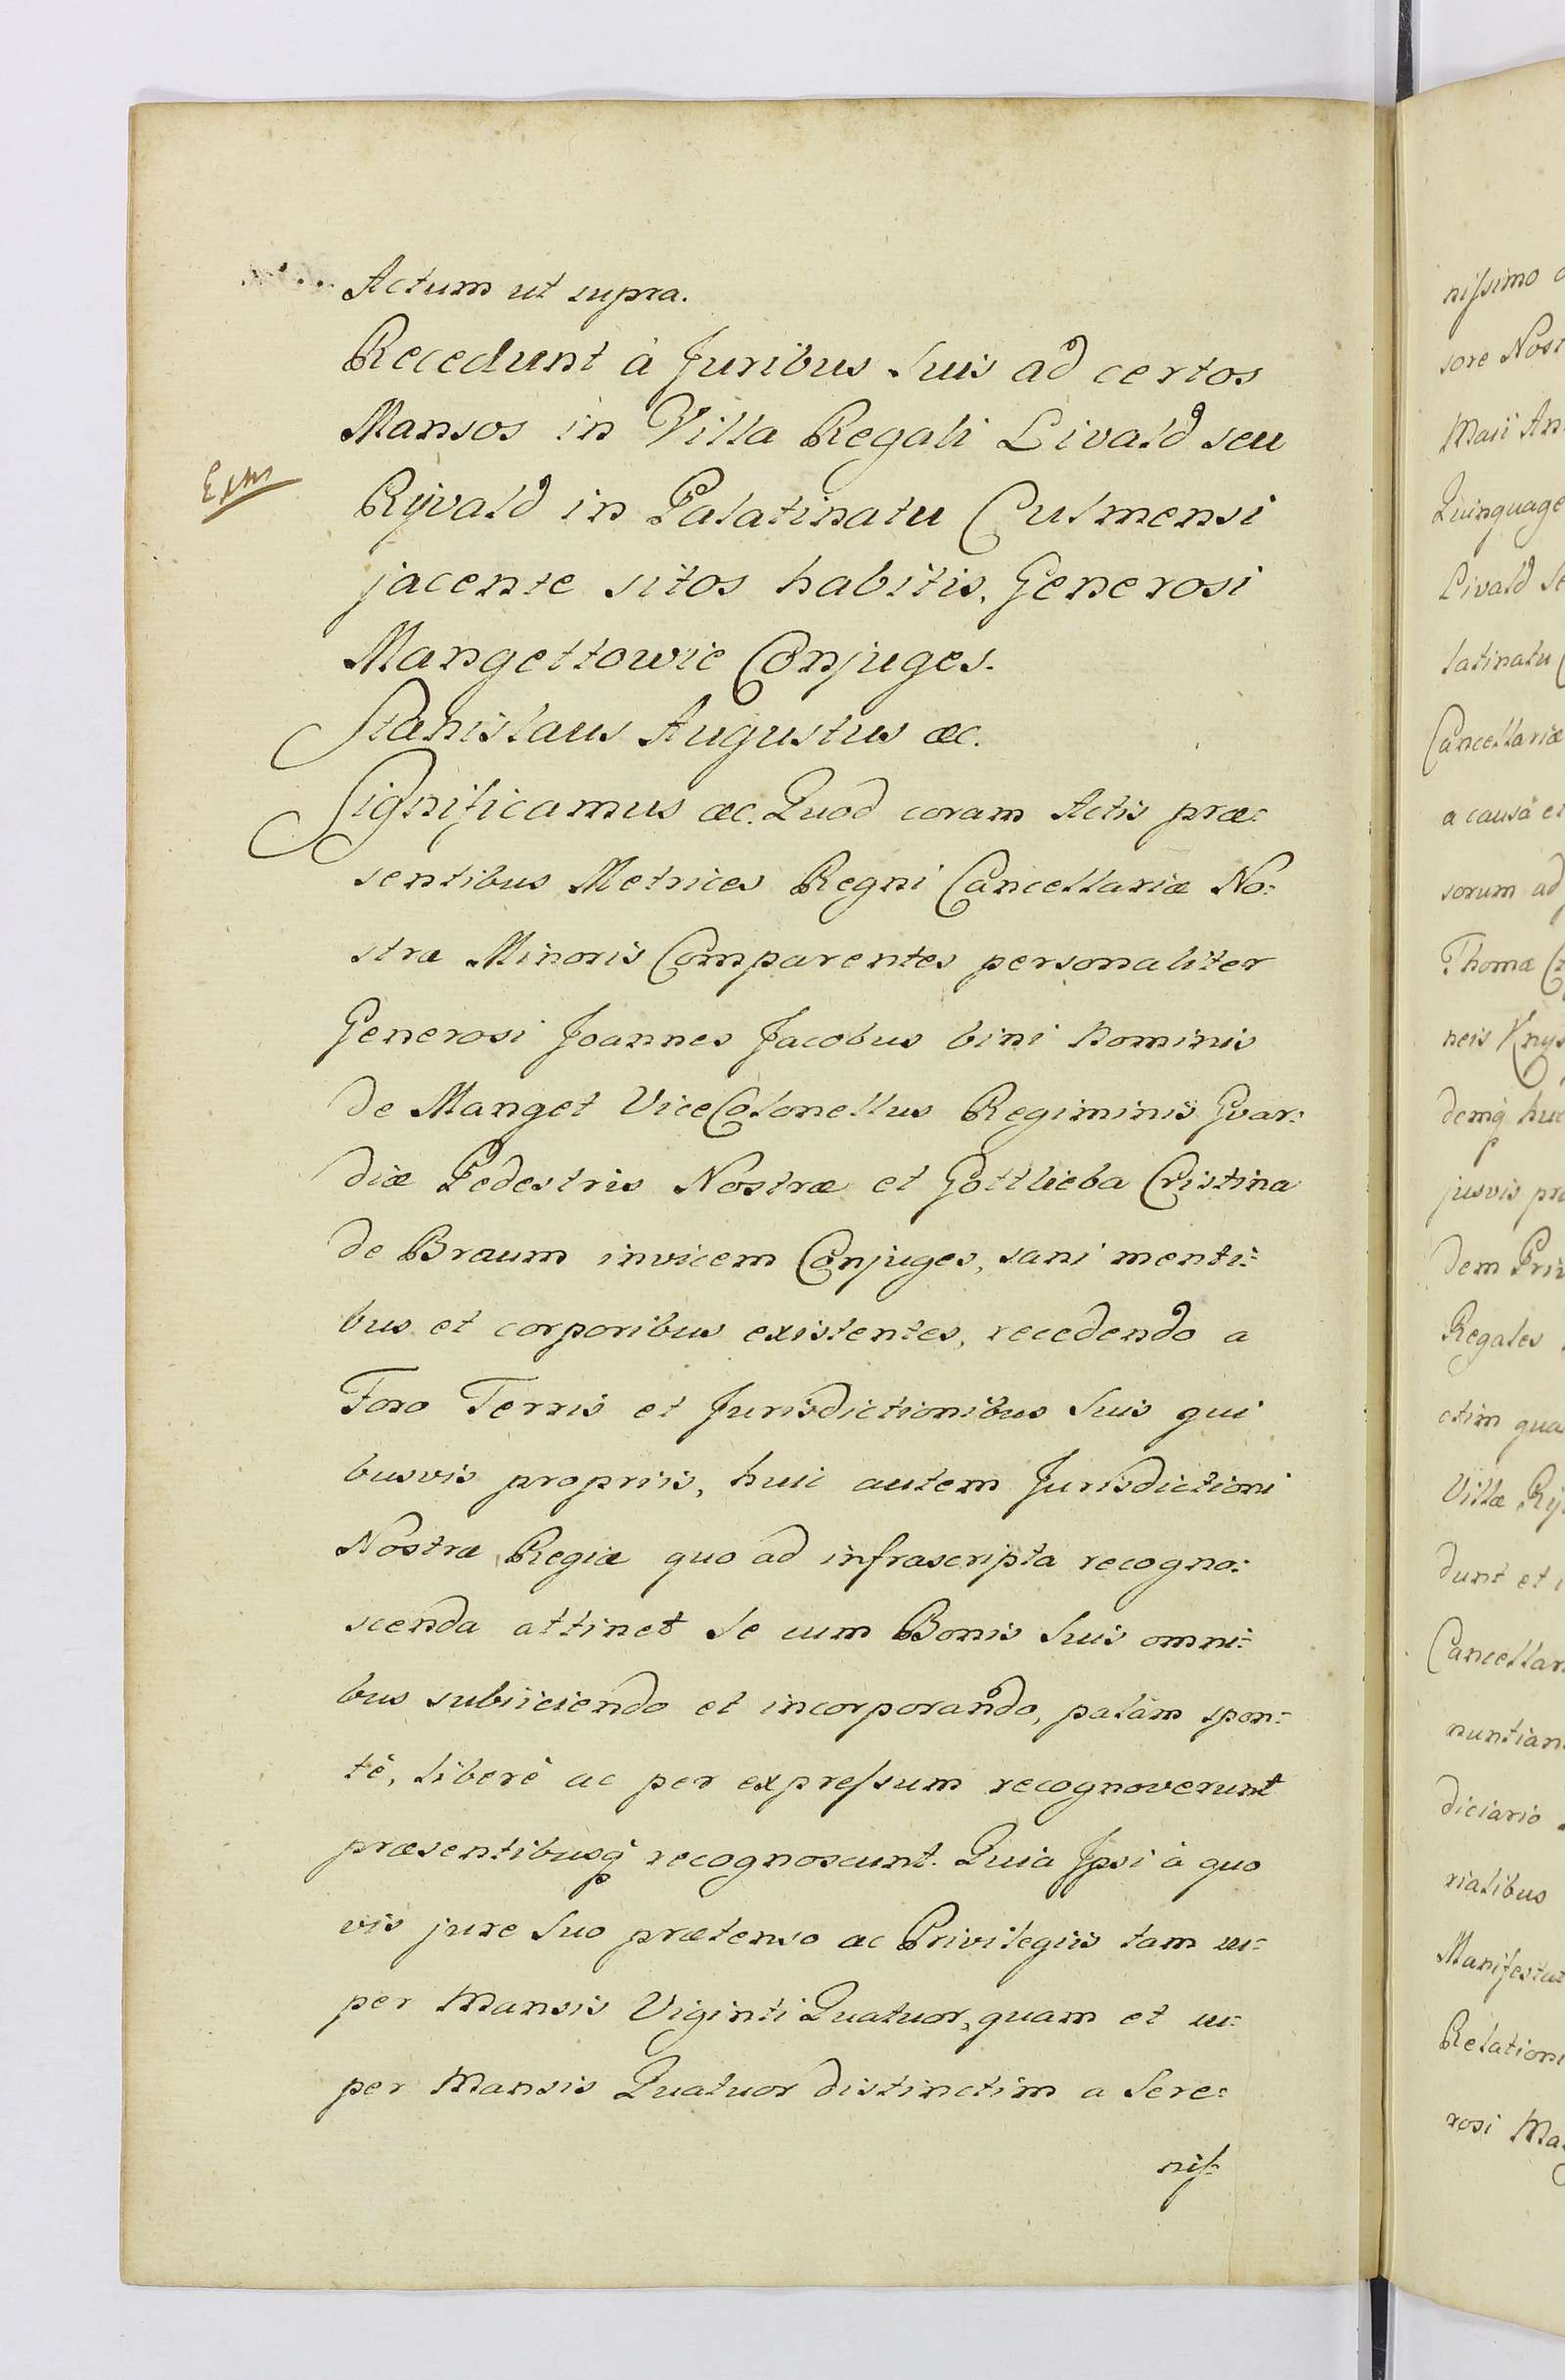 Actum ut supra.
Recedunt à Juribus Suis ad certos
Mansos in Villa Regali Livald seu
Extr
Ryvald in Palatinatu Culmensi
jacente sitos habitis, Generosi
Mangettowie Conjuges.
Stanislaus Augustus æc.
Significamus æc. Quod coram Actis præ:
sentibus Metrices Regni Cancellariæ No:
stræ Minoris Comparentes personaliter
Generosi Joannes Jacobus bini Nominis
de Manget ViceColonellus Regiminis Gvar:
diæ Pedestris Nostræ et Gottlieba Cristina
de Braum invicem Conjuges, sani menti:
bus et corporibus existentes, recedendo a
Foro Terris et Jurisdictionibus Suis qui
busvis propriis, huic autem Jurisdictioni
Nostræ Regiæ quo ad infrascripta recogno:
scenda attinet Se cum Bonis Suis omni:
bus subiiciendo et incorporando, palàm spon:
tè, liberè ac per expressum recognoverunt
præsentibusq recognoscunt. Quia Ipsi à quo
vis jure Suo prætenso ac Privilegiis tam su:
per Mansis Viginti Quatuor, quam et su:
per Mansis Quatuor distinctim a Sere:
nis:
nissimo
sore Nost
Maii An
Quinquage
Livald Se
latinatu C
Cancellariæ
a causa et
sorum ad
Thomæ
neis Knys
demq huc
jusvis pro
dem Priv
Regales
ctim qua
Villæ Ry
dunt et
Cancellar
nuntian
diciario
rialibus
Manifestat
Relation
rosi Ma